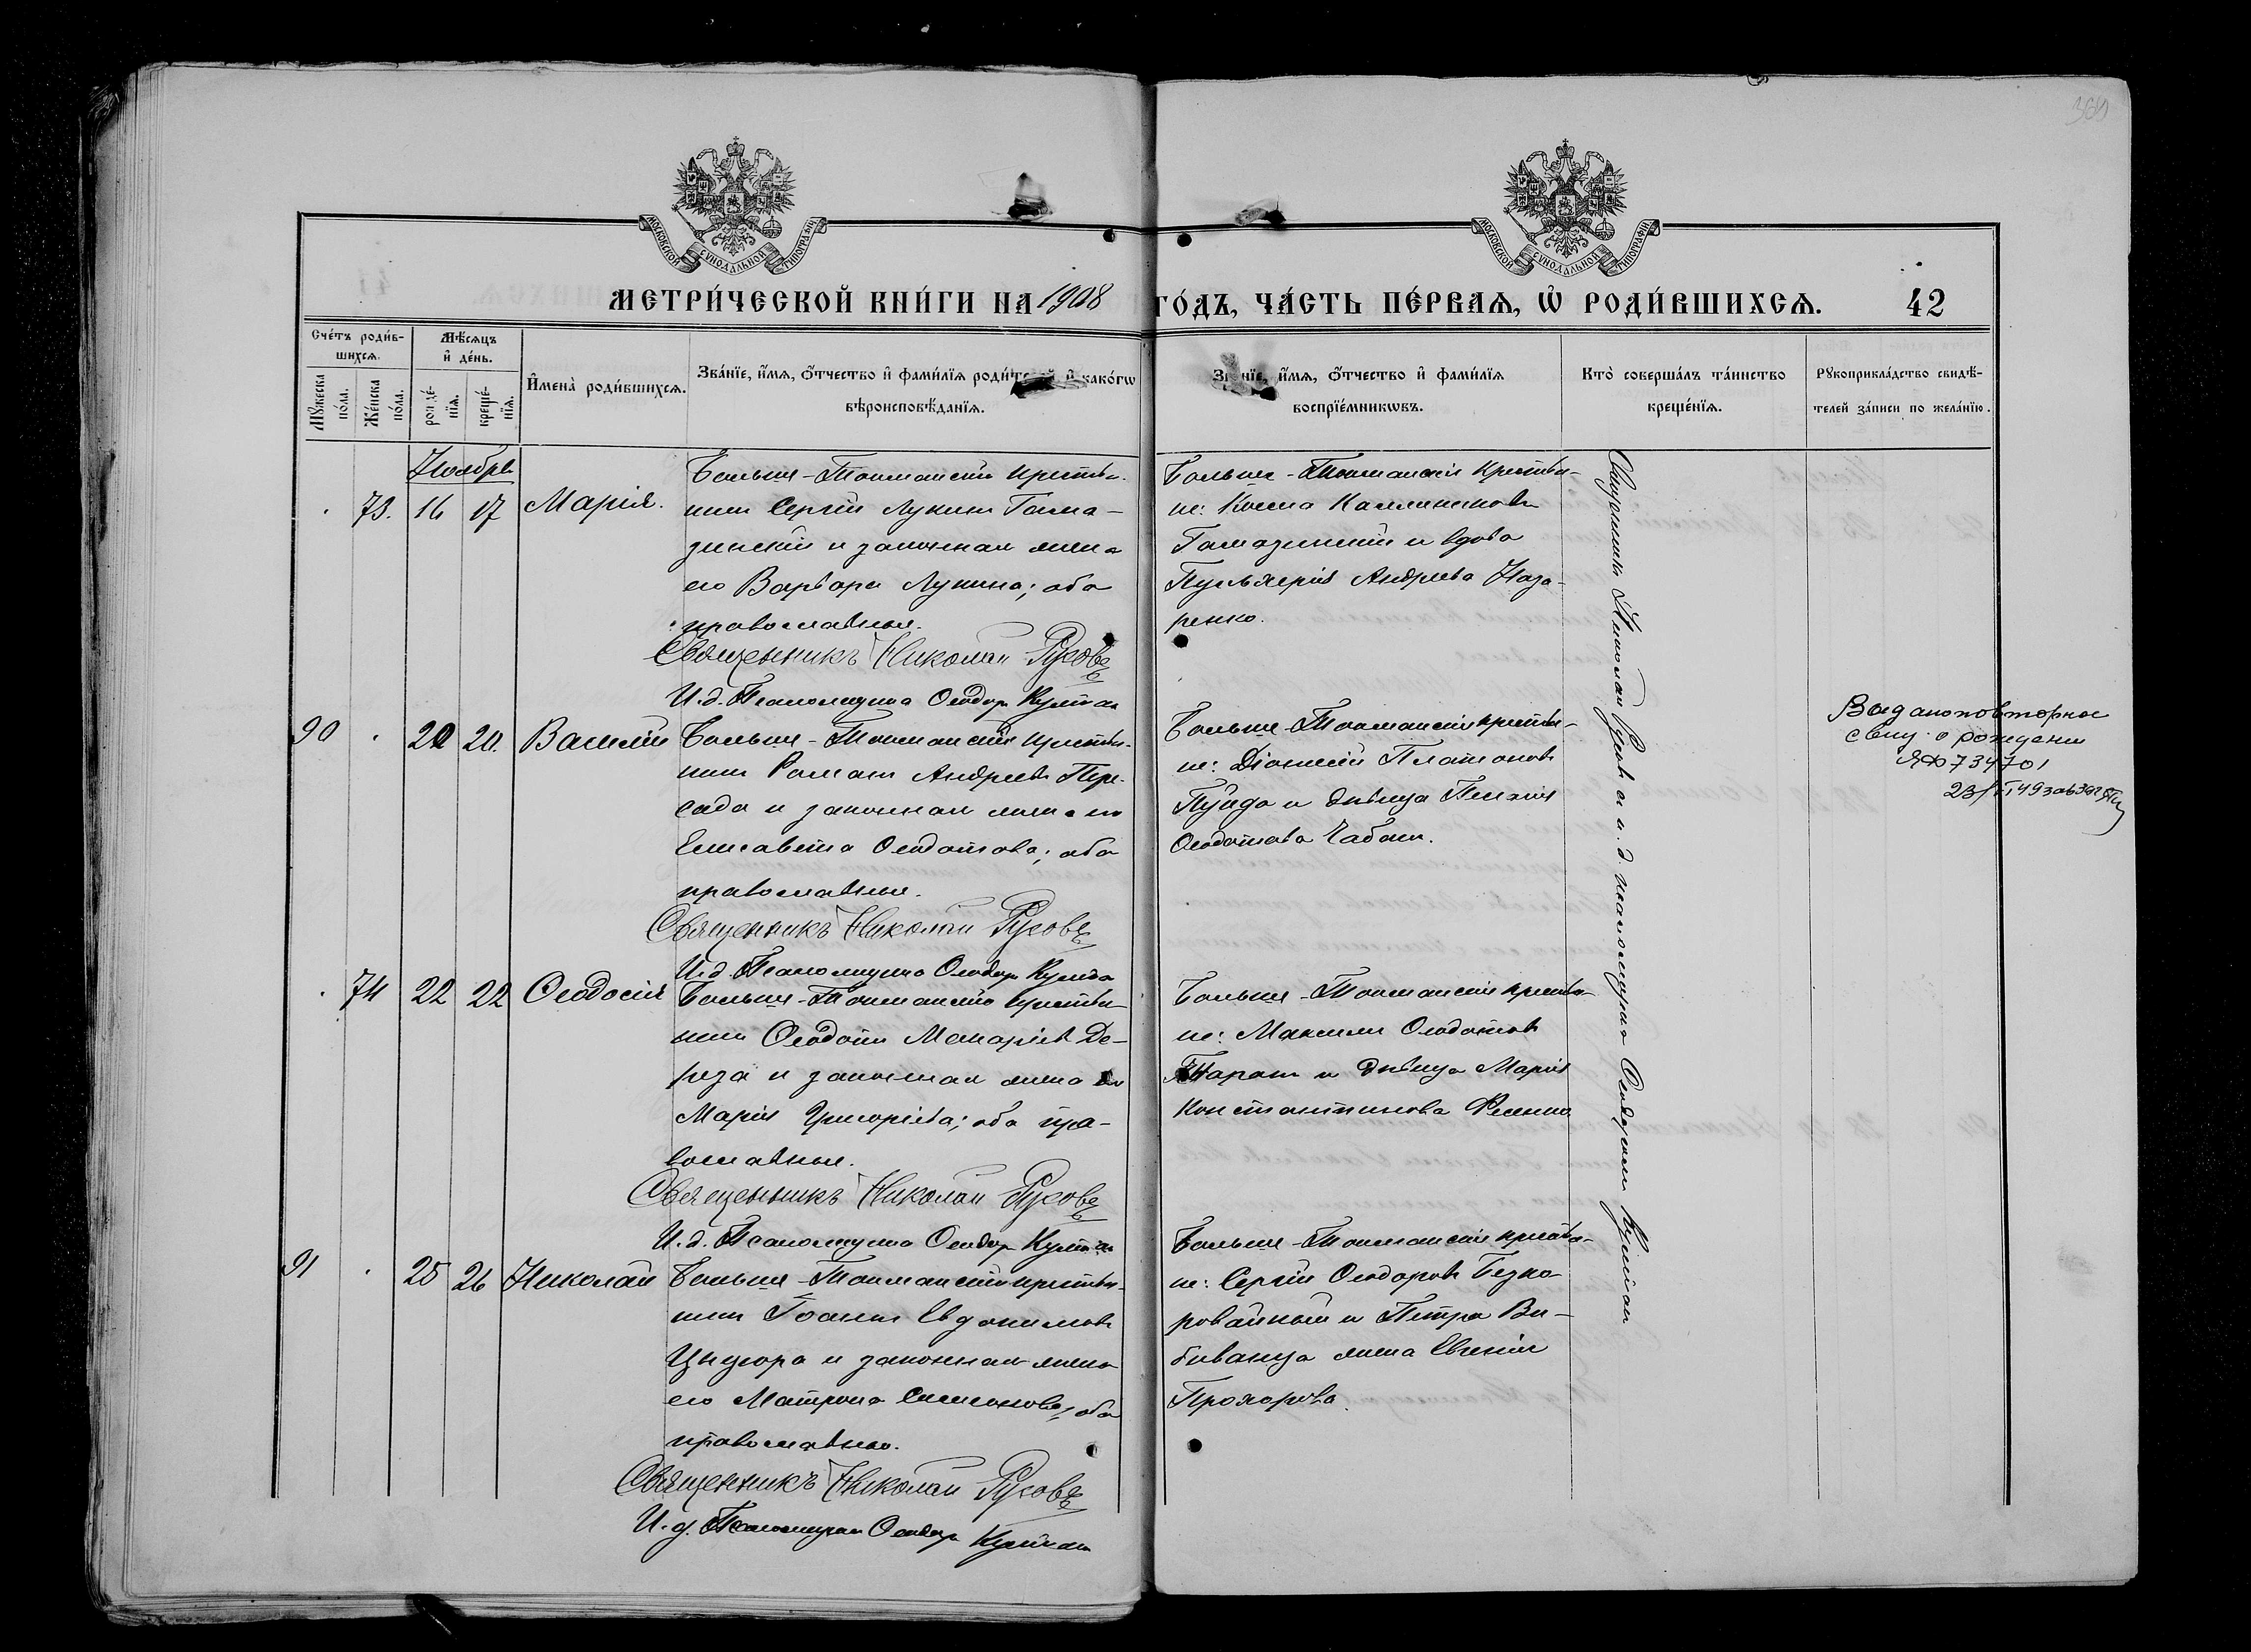 369
МОСКОВСКОЙ СУНОДАЛЬНОЙ ТИПОГРАФІИ
МОСКОВСКОЙ СУНОДАЛЬНОЙ ТИПОГРАФІИ
МЕТРИ́ЧЕСКОЙ КНИ́ГИ НА 1908 ГО́ДЪ, ЧА́СТЬ ПЕ́РВАѦ, Ѡ҆ РОДИ́ВШИХСѦ. 42
Сче́тъ роди́в-
шихсѧ.
Мꙋ́жеска по́ла.
Же́нска по́ла.
Мѣ́сѧцъ
и҆ де́нь.
рожде́-
нїѧ.
креще́-
нїѧ.
И҆мена̀ роди́вшихсѧ.
Зва́нїе, и҆́мѧ, ѻ҆́тчество и҆ фами́лїѧ роди́телей и҆ како́гѡ
вѣроисповѣ́данїѧ.
Зва́нїе, и҆́мѧ, ѻ҆́тчество и҆ фами́лїѧ
воспрїе́мникѡвъ.
Кто̀ соверша́лъ та́инство
креще́нїѧ.
Рꙋкоприкла́дство свидѣ́-
телей за́писи по жела́нїю.
Ноябрь
73. 16 17 Марія.
Больше-Токмакскій крестья-
нинъ Сергій Лукинъ Гама-
зинскій и законная жена
его Варвара Лукина; оба
православные.
Священникъ Николай Русовъ
И. д. Псаломщика Ѳеодоръ
Больше-Токмакскіе крестья-
не: Косма Каллиниковъ
Гамазинскій и вдова
Пульхерія Андреева Наза-
ренко.
90 20 20. Василій
Больше-Токмакскій крестья-
нинъ Романъ Андреевъ Пере-
сада и законная жена его
Елисавета Ѳеодотова; оба
православные.
Священникъ Николай Русовъ
И. д. Псаломщика Ѳеодоръ
Больше-Токмакскіе крестья-
не: Діонисій Платоновъ
и дѣвица Пелагія
Ѳеодотова Чабанъ.
Выдано повторное
свид. о рождении
ЯФ 734701
74 22 22 Ѳеодосія
Больше-Токмакскій крестья-
нинъ Ѳеодотъ Макаріевъ Де-
реза и законная жена его
Марія Григоріева; оба пра-
вославные.
Священникъ Николай Русовъ
И. д. Псаломщика Ѳеодоръ
Больше-Токмакскіе крестья-
не: Максимъ Ѳеодотовъ
Таранъ и дѣвица Марія
Константинова
91 25 26 Николай
Больше-Токмакскій крестья-
нинъ Іоаннъ Евдокимовъ
и законная жена
его Матрона Симеонова; оба
православные.
Священникъ Николай Русовъ
И. д. Псаломщика Ѳеодоръ
Больше-Токмакскіе крестья-
не: Сергій Ѳеодоровъ Безко-
ровайный и Петра Ви-
биванца жена Евгенія
Прохорова.
Священникъ Николай Русовъ и и. д. псаломщика Ѳеодоръ